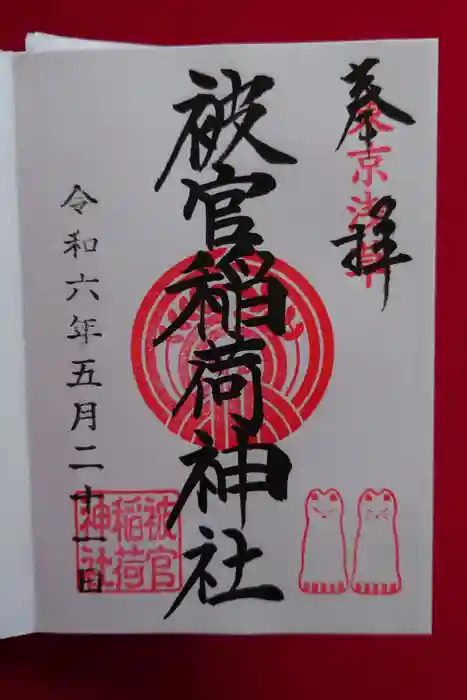 奉拝
東京浅草
被官稲荷神社
令和六年五月二十一日
被官
稲荷
神社